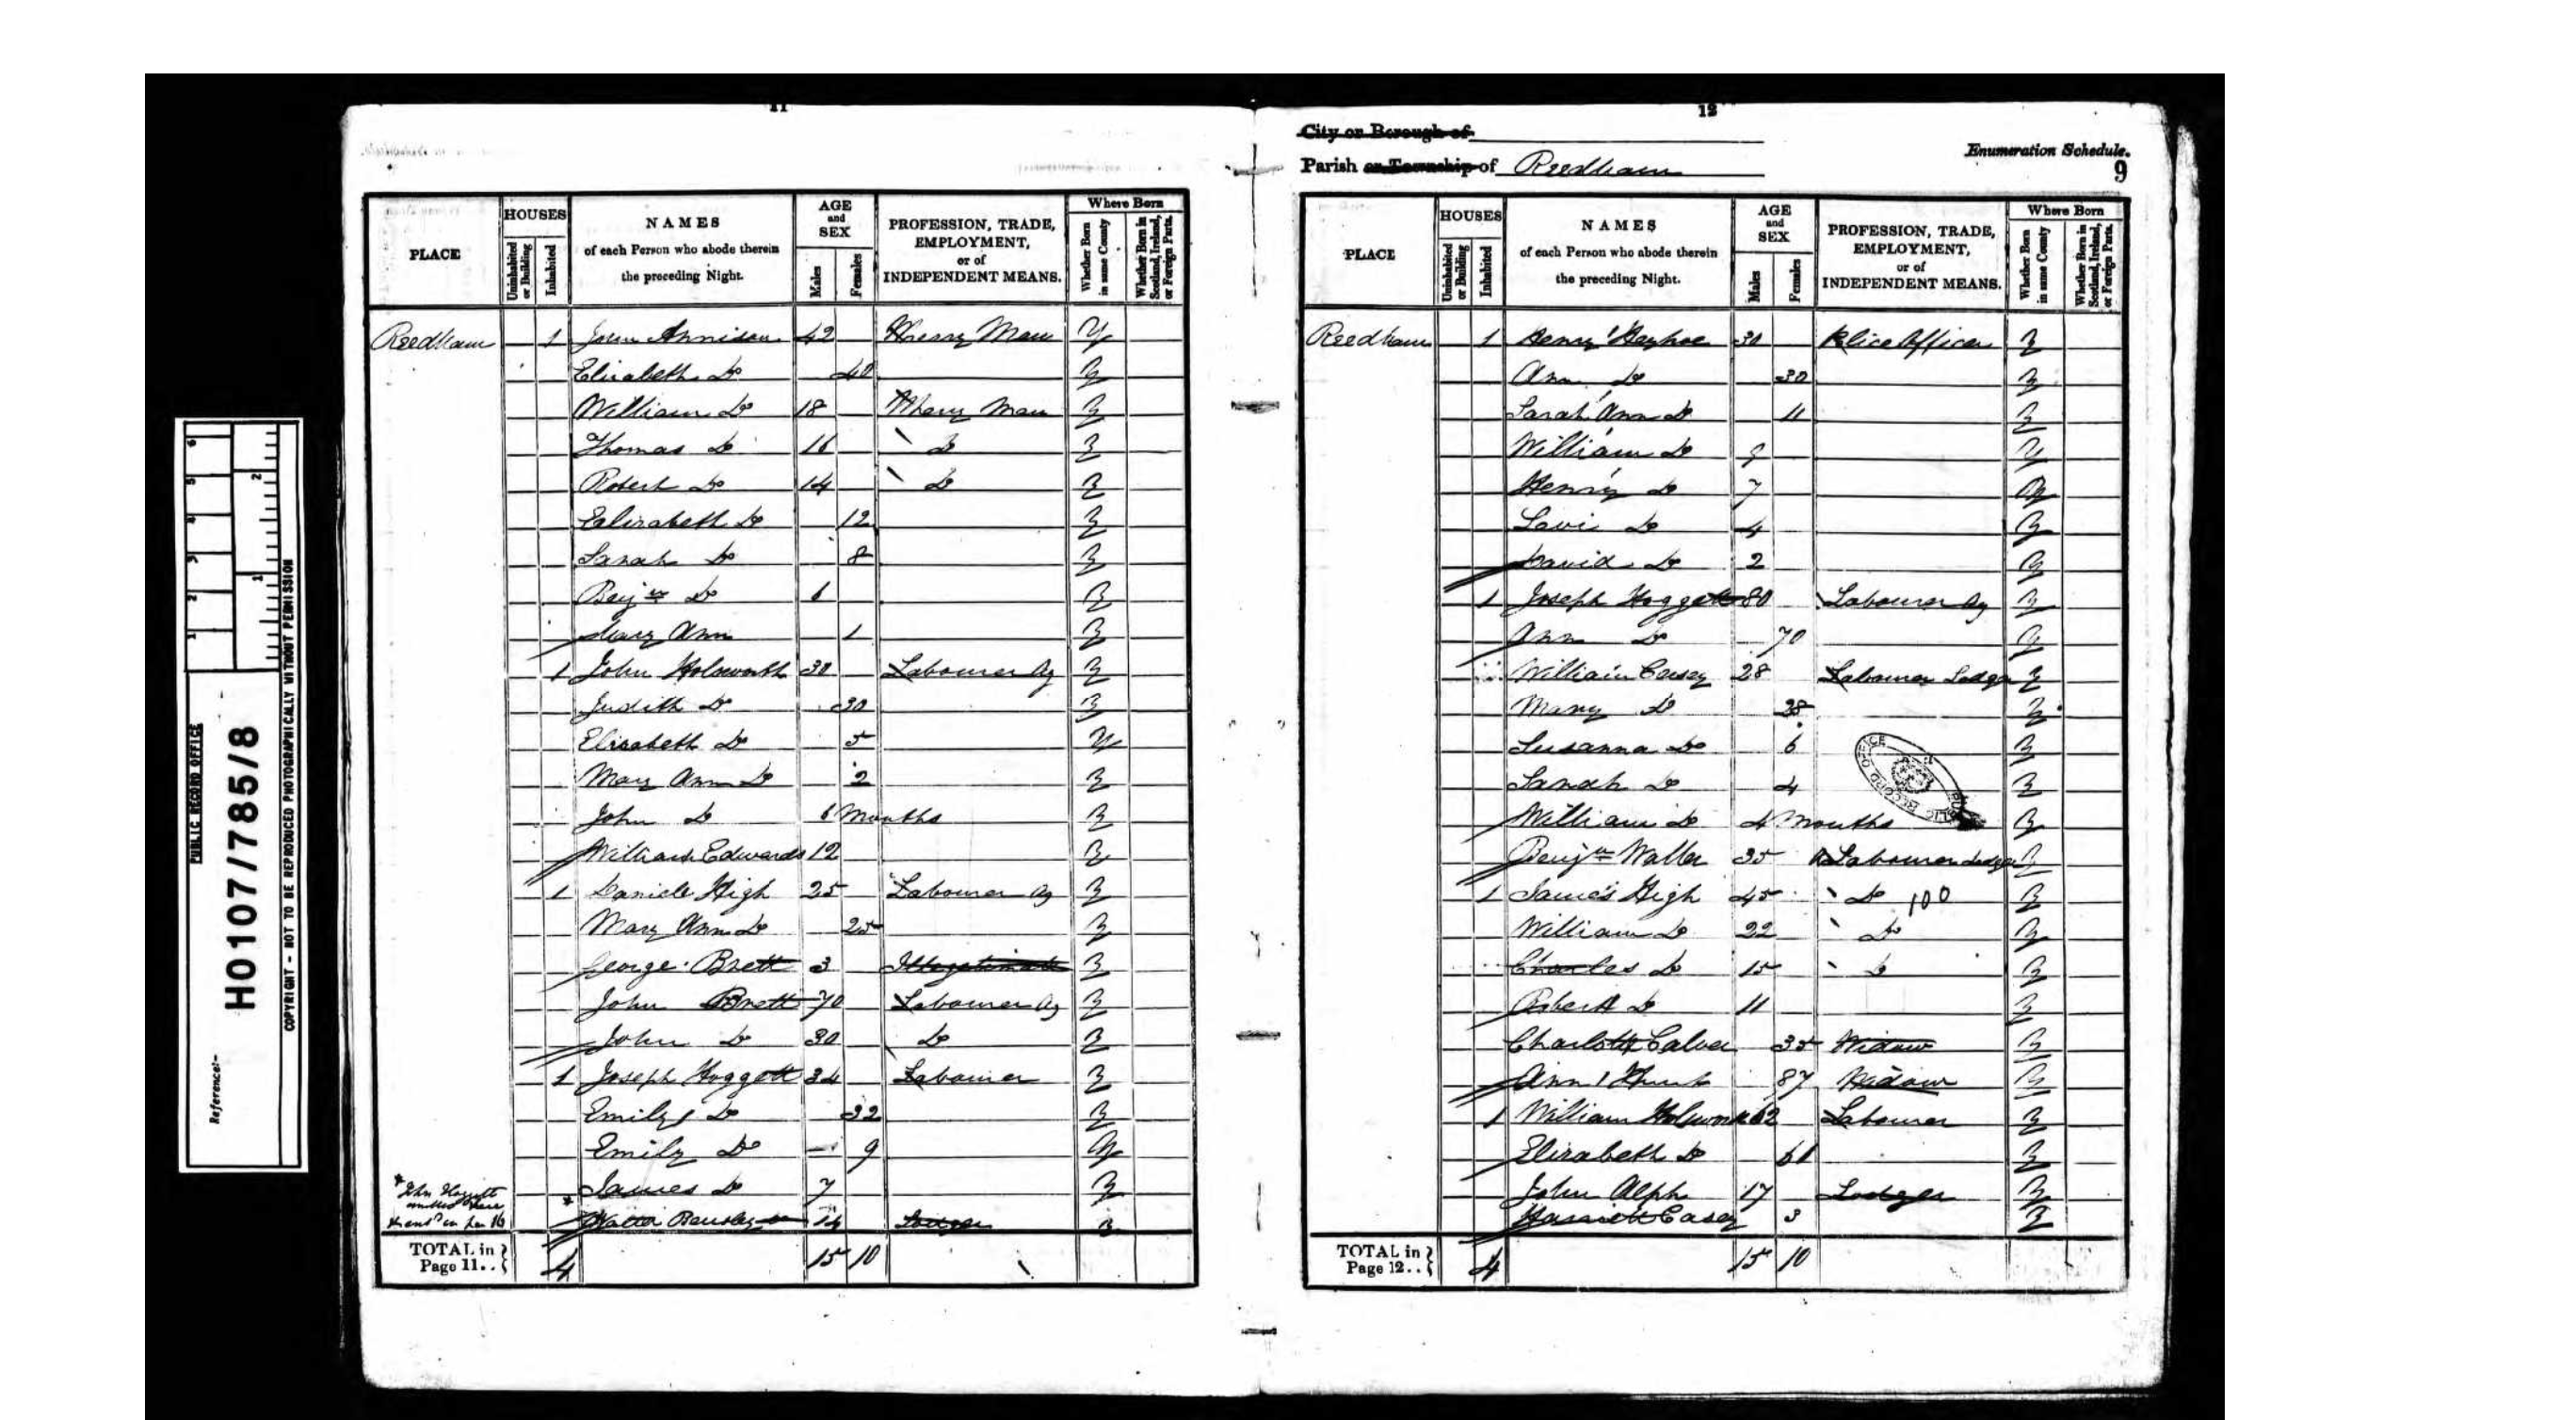 PUBLIC RECORD OFFICE
Reference:-
HO107/785/8
COPYRIGHT - NOT TO BE REPRODUCED PHOTOGRAPHICALLY WITHOUT PERMISSION
11
PLACE
HOUSES
Uninhabited or Building
Inhabited
NAMES
of each Person who abode therein
the preceding Night.
AGE
and
SEX
Males
Females
PROFESSION, TRADE,
EMPLOYMENT,
or of
INDEPENDENT MEANS.
Where Born
Whether Born in same County
Whether Born in Scotland, Ireland, or Foreign Parts.
Reedham 1 John Annison 42 Wherry Man Y
Elizabeth Do 40 Y
William Do 18 Wherry Man Y
Thomas Do 16 Do Y
Robert Do 14 Do Y
Elizabeth Do 12 Y
Sarah Do 8 Y
Benjn Do 6 Y
Mary Ann 1 Y
1 John Holsworth 30 Labourer Ag Y
Judith Do 30 Y
Elizabeth Do 5 Y
Mary Ann Do 2 Y
John Do 6 Months Y
William Edwards 12 Y
1 Daniele High 25 Labourer Ag Y
Mary Ann Do 25 Y
George Brett 3 Illegetimate Y
John Brett 70 Labourer Ag Y
John Do 30 Do Y
1 Joseph Hoggett 34 Labourer Y
Emily Do 32 Y
Emily Do 9 Y
James Do 7 Y
* John Hoggett
omitted here
Walter 14 Lodger Y
TOTAL in Page 11.. 4 15 10
12
City or Borough of
Parish or Township of Reedham
Enumeration Schedule.
9
PLACE
HOUSES
Uninhabited or Building
Inhabited
NAMES
of each Person who abode therein
the preceding Night.
AGE
and
SEX
Males
Females
PROFESSION, TRADE,
EMPLOYMENT,
or of
INDEPENDENT MEANS.
Where Born
Whether Born in same County
Whether Born in Scotland, Ireland, or Foreign Parts.
Reedham 1 Henry Heyhoe 30 Police Officer Y
Ann Do 30 Y
Sarah Ann Do 11 Y
William Do 9 Y
Henry Do 7 Y
Levi Do 4 Y
David Do 2 Y
1 Joseph Hoggett 80 Labourer Ag Y
Ann Do 70 Y
William Casey 28 Labourer Lodger Y
Mary Do 28 Y
Susanna Do 6 Y
Sarah Do 4 Y
William Do 4 Months Y
Benjn Waller 35 Labourer Lodger Y
1 James High 45 Do 100 Y
William Do 22 Do Y
Charles Do 15 Do Y
Robert Do 11 Y
Charlotte Calver 35 Widow Y
Ann Hunt 87 Widow Y
1 William Holsworth 62 Labourer Y
Elizabeth Do 61 Y
John Alph 17 Lodger Y
Harriett Casey 3 Y
TOTAL in Page 12.. 4 15 10
PUBLIC RECORD OFFICE